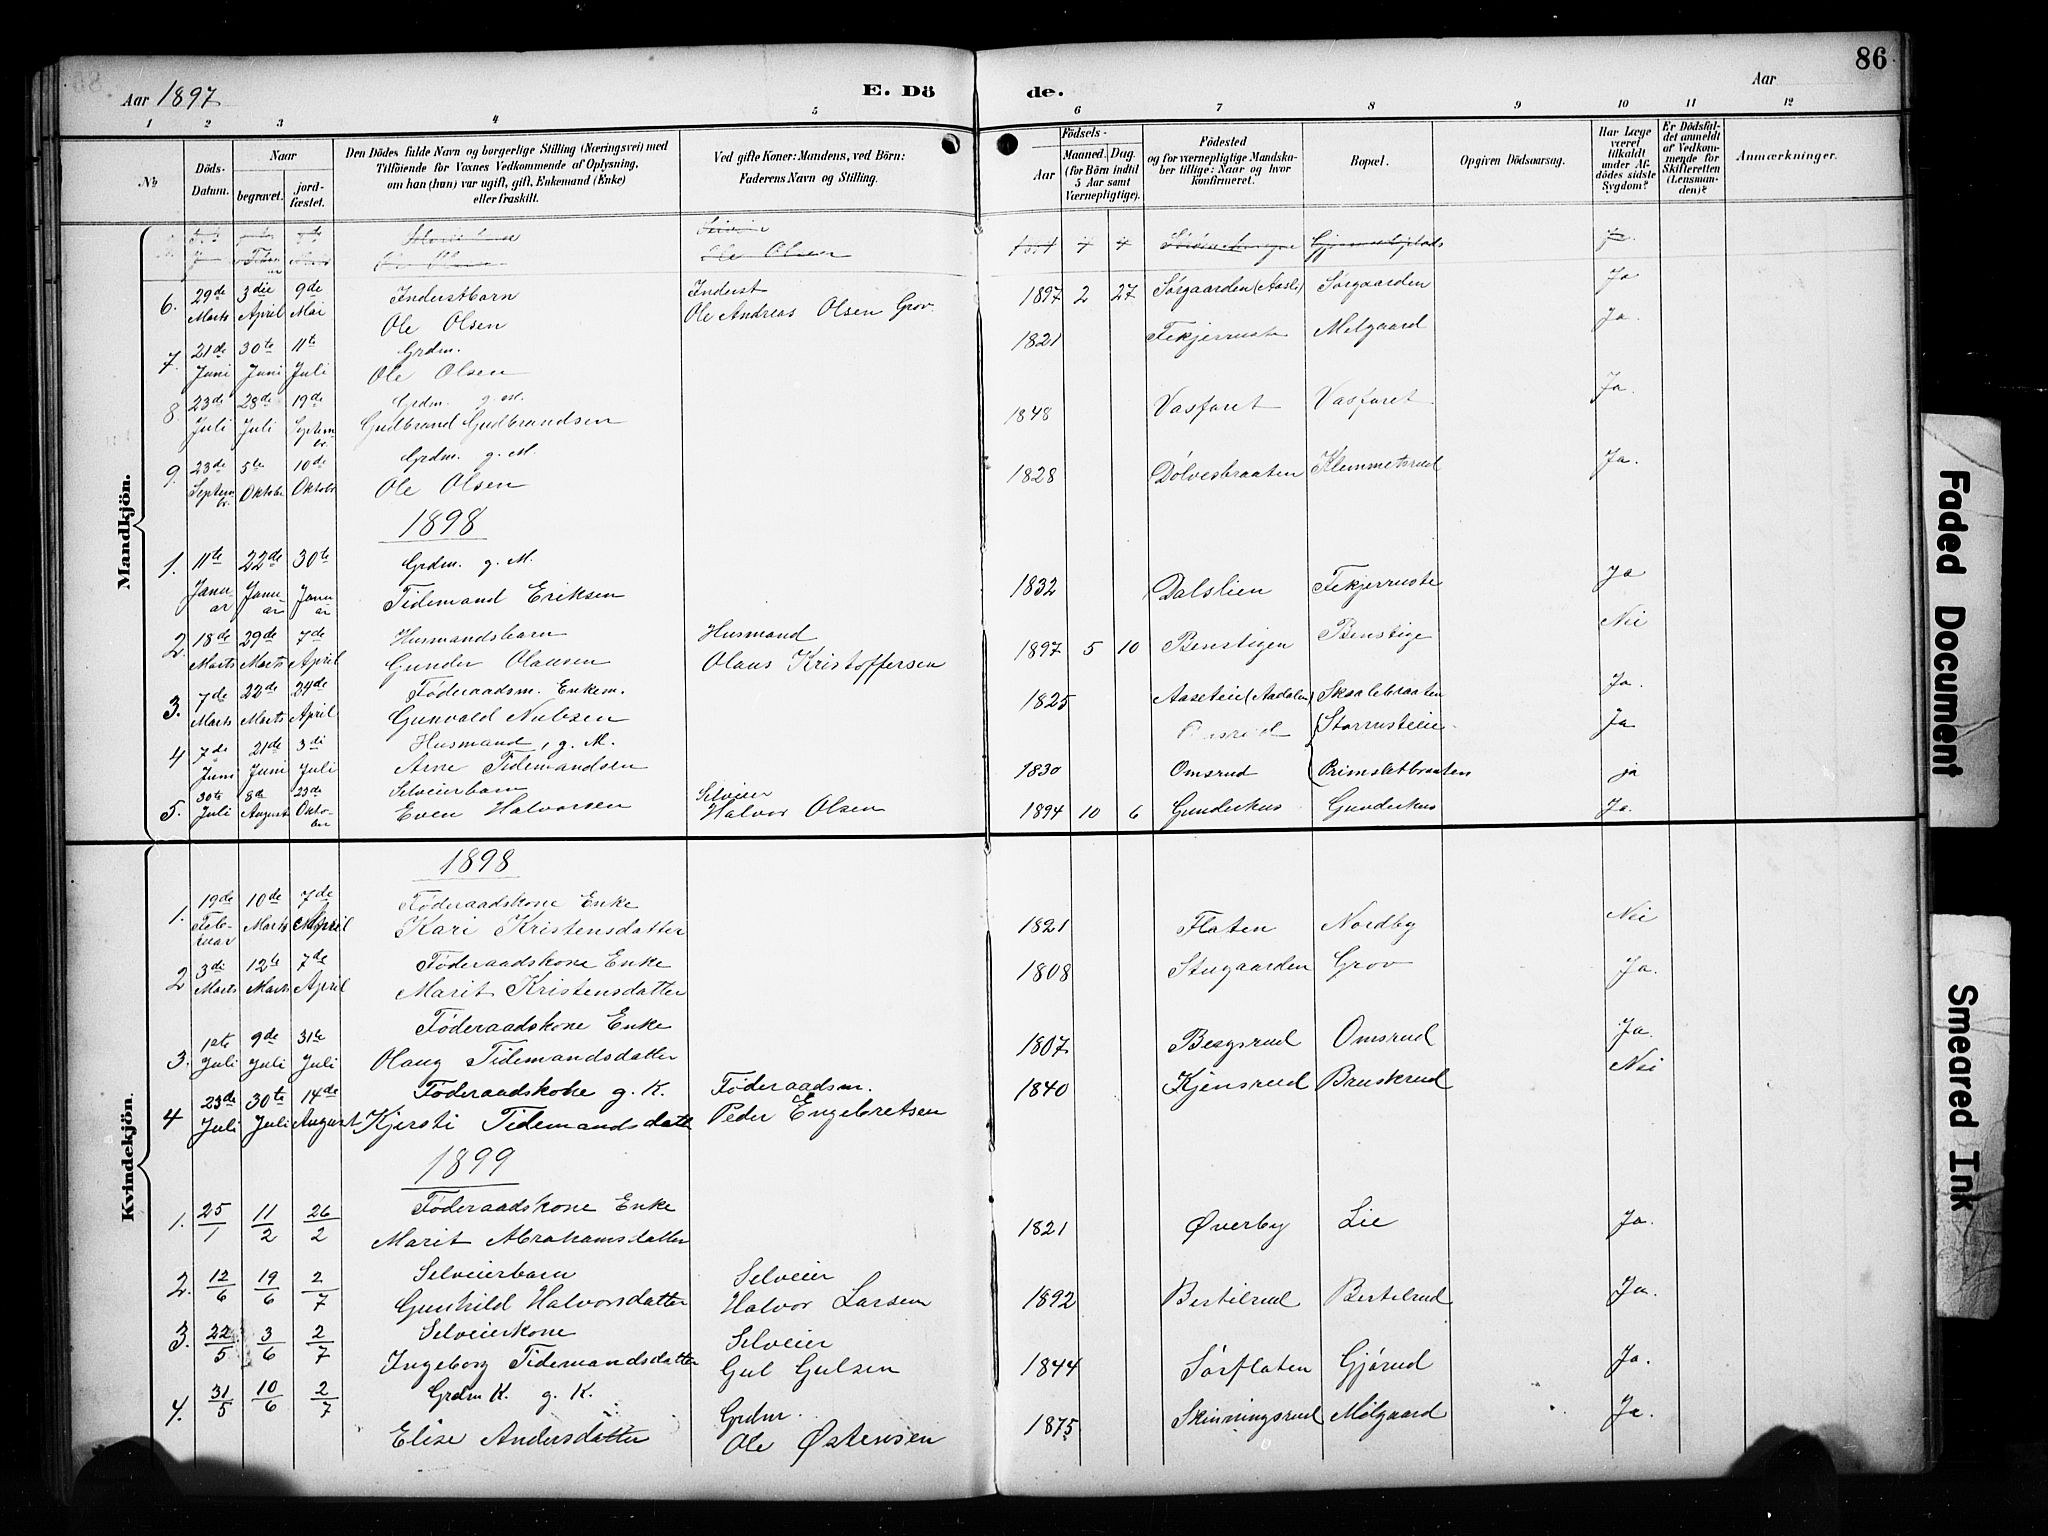 86
Aar 1897
E. Dö
de.
Aar
1 2 3 4 5 6 7 8 9 10 11 12
№
Döds-
Datum.
Naar
begravet.
jord-
fæstet.
Den Dödes fulde Navn og borgerlige Stilling (Næringsvei) med
Tilföiende for Voxnes Vedkommende af Oplysning,
om han (hun) var ugift, gift, Enkemand (Enke)
eller fraskilt.
Ved gifte Koner: Mandens, ved Börn:
Faderens Navn og Stilling.
Födsels-
Aar
Maaned. Dag.
(for Börn indtil
5 Aar samt
Værnepligtige).
Födested
og for værnepligtige Mandska-
ber tillige: Naar og hvor
konfirmeret.
Bopæl.
Opgiven Dödsaarsag.
Har Læge
været
tilkaldt
under Af-
dödes sidste
Sygdom?
Er Dödsfal-
det anmeldt
af Vedkom-
mende for
Skifteretten
(Lensman-
den)?
Anmærkninger.
Mandkjön.
Ole Olsen
6. 29de Marts 3die April 9de Mai Inderstbarn Inderst 1897 2 27 Sørgaarden (Aasli) Sørgaarden Ja
Ole Olsen Ole Andreas Olsen Grov
7. 21de Juni 30te Juni 11te Juli Grdm. 1821 Tekjerruste Mølgaard Ja.
Ole Olsen
8. 23de Juli 28de Juli 19de Septembr. Grdm. g. M. 1848 Vasfaret Vasfaret Ja.
Gudbrand Gudbrandsen
9. 23de Septembr. 5te Oktobr 10de Oktobr Grdm. g. M. 1828 Dølvesbraaten Klemmetsrud Ja.
Ole Olsen
1898
1. 11te Januar 22de Januar 30te Januar Grdm. g. M. 1832 Dalslien Tekjerruste Ja
Tidemand Eriksen
2. 18de Marts 29de Marts 7de April Husmandsbarn Husmand 1897 5 10 Benstigen Benstige Nei
Gunder Olausen Olaus Kristoffersen
3. 7de Marts 22de Marts 24de April Føderaadsm. Enkem. 1825 Aaseteie (Aadalen) Skaalebraaten Ja.
Gunvald Nubsen
4 7de Juni 21de Juni 3di Juli Husmand, g. M. (Storrusteie Ja
Arne Tidemandsen 1830 Omsrud (Primsletbraaten ja
5. 30te Juli 8de August 23de Oktober Selveierbarn Selveier
Even Halvorsen Halvor Olsen 1894 10 6 Gunderhus Gunderhus Ja.
Kvindekjön.
1898
1. 19de Februar 10de Marts 7de April Føderaadskone Enke 1821 Flaten Nordby Nei
Kari Kristensdatter
2 3di Marts 12te Marts 7de April Føderaadskone Enke 1808 Stugaarden Grov Ja.
Marit Kristensdatter
3. 1ste Juli 9de Juli 31te Juli Føderaadskone Enke 1807 Bergsrud Omsrud Ja.
Olaug Tidemandsdatter
4 23de Juli 30te Juli 14de August Føderaadskone g. K. Føderaadsm. 1840 Kjensrud Bruskrud Nei
Kjersti Tidemandsdatt Peder Engebretsen
1899
1. 25/1 11/2 26/2 Føderaadskone Enke 1821 Øverby Lie Ja.
Marit Abrahamsdatter
2. 12/6 19/6 2/7 Selveierbarn Selveier 1892 Bertilrud Bertilrud Ja.
Gunhild Halvorsdatter Halvor Larsen
3. 22/5 3/6 2/7 Selveierkone Selveier 1844 Sørflaten Gjørud Ja.
Ingeborg Tidemandsdatter Gul Gulsen
4. 31/5 10/6 2/7 Grdm K. g. K. Grdm. 1875 Skinningsrud Mølgaard Ja.
Elise Andersdatter Ole Østensen
Faded Document
Smeared Ink